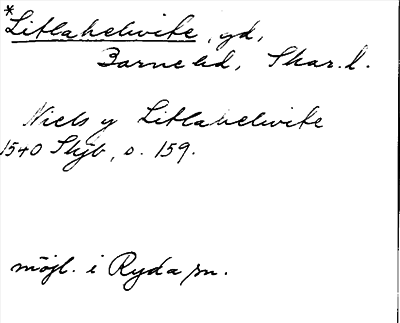 *Litlahelvite, gd,
Barne hd, Skar. l.
Niels y Litlahelvite
1540 Skjb, s. 159.
möjl. i Ryda sn.